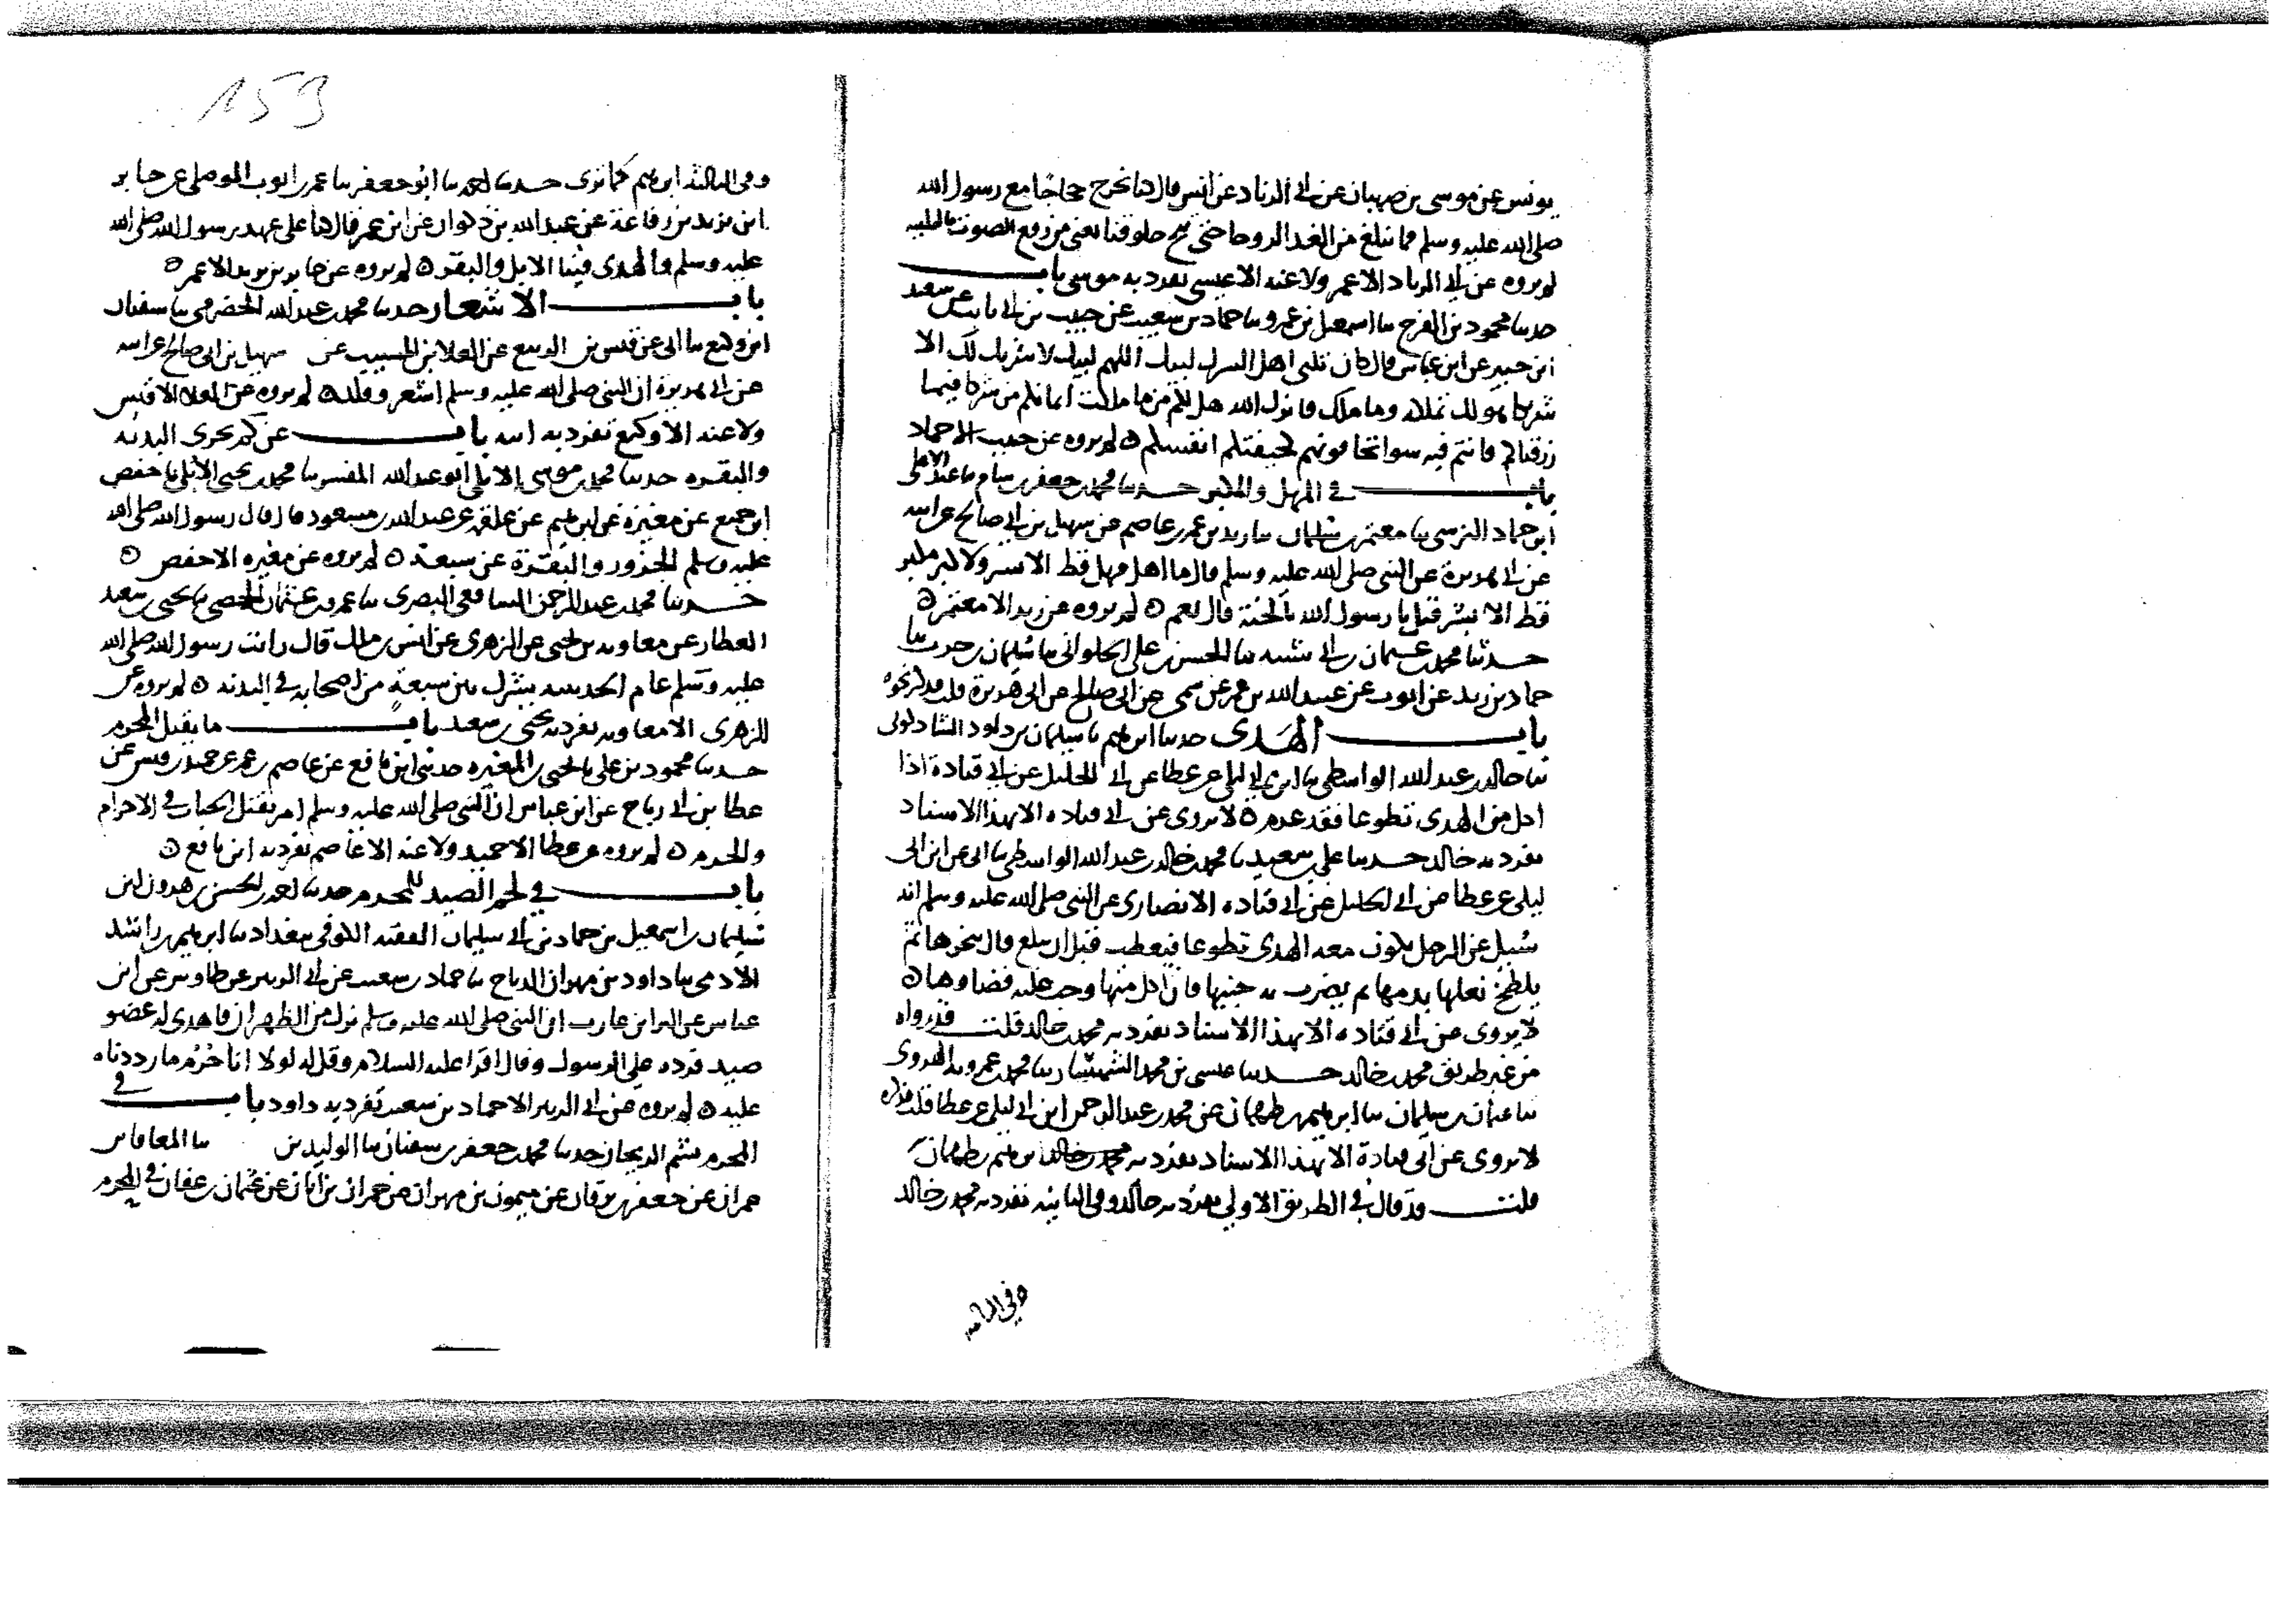 يونس عن موسى بن صهبان عن ابى الزناد عن انس قال كنا نخرج حجاجا مع رسول الله
صلى الله عليه وسلم فما نبلغ من الغد الروحا حتى تبح حلوقنا يعنى من رفع الصوت بالتلبيه
لم يروه عن ابى الزناد الا عمر ولا عنه الا عيسى تفرد به موسى باب
حدثنا محمود بن الفرج نا اسمعيل بن عمرو نا حماد بن شعيب عن حبيب بن ابى ثابت عن سعيد
ابن جبير عن ابن عباس قال كان تلبى اهل الشرك لبيك اللهم لبيك لا شريك لك الا
شريكا هو لك تملكه وما ملك فانزل الله هل لكم من ما ملكت ايمانكم من شركا فيما
رزقناكم فانتم فيه سوا تخافونهم كخيفتكم انفسكم ه لم يروه عن حبيب الا حماد
باب فى المهل والمكبر حدثنا محمد بن جعفر نا عبد الاعلى
ابن حماد النرسى نا معتمر بن سليمان نا زيد بن عمر بن عاصم عن سهيل بن ابى صالح عن ابيه
عن ابى هريرة عن النبى صلى الله عليه وسلم قال ما اهل مهل قط الا بشر ولا كبر مكبر
قط الا بشر قيل يا رسول الله بالجنة قال نعم ه لم يروه عن زيد الا معتمر ه
حدثنا محمد بن عثمان بن ابى شيبه نا الحسن بن على الحلوانى نا سليمان بن حرب نا
حماد بن زيد عن ايوب عن عبيد الله بن عمر عن سمى عن ابى صالح عن ابى هريرة قلت فذكر نحوه
باب الهدى حدثنا ابرهيم نا سليمان بن داود الشاذكونى
نا خالد بن عبد الله الواسطى نا ابن ابى ليلى عن عطا عن ابى الخليل عن ابى قتادة اذا
اكل من الهدى تطوعا فقد غرم ه لا يروى عن ابى قتاده الا بهذا الاسناد
تفرد به خالد حدثنا على بن سعيد نا محمد بن خالد بن عبد الله الواسطى نا ابى عن ابن ابى
ليلى عن عطا عن ابى الخليل عن ابى قتاده الانصارى عن النبى صلى الله عليه وسلم انه
سئل عن الرجل يكون معه الهدى تطوعا فيعطب قبل ان يبلغ قال ينحرها ثم
يلطخ نعلها بدمها ثم يضرب به جنبها فان اكل منها وجب عليه قضاوها ه
لا يروى عن ابى قتاده الا بهذا الاسناد تفرد به محمد بن خالد قلت قد رواه
من غير طريق محمد بن خالد حدثنا عيسى بن محمد السمسار نا محمد بن عمرويه الهروى
نا غسان بن سليمان نا ابرهيم بن طهمان عن محمد بن عبد الرحمن ابن ابى ليلى عن عطا قلت فذكره
لا يروى عن ابى قتادة الا بهذا الاسناد تفرد به ابرهيم بن طهمان
قلت وقد قال فى الطريق الاولى تفرد به خالد وفى الثانيه تفرد به محمد بن خالد
وفى الثالثه
153
وفى الثالثه ابرهيم كما ترى حدثنا احمد نا ابو جعفر نا عمر بن ايوب الموصلى عن جابر
ابن يزيد بن رفاعة عن عبد الله بن ذكوان عن ابن عمر قال كنا على عهد رسول الله صلى الله
عليه وسلم والهدى فينا الابل والبقر ه لم يروه عن جابر بن يزيد الا عمر ه
باب الاشعار حدثنا محمد بن عبد الله الحضرمى نا سفيان
ابن وكيع نا ابى عن قيس بن الربيع عن العلا بن المسيب عن سهيل بن ابى صالح عن ابيه
عن ابى هريرة ان النبى صلى الله عليه وسلم اشعر وقلد ه لم يروه عن العلا الا قيس
ولا عنه الا وكيع تفرد به ابنه باب عن كم تجزى البدنه
والبقره حدثنا محمد بن موسى الابلى ابو عبد الله المفسر نا محمد بن يحيى الابلى نا حفص
ابن جميع عن مغيرة عن ابرهيم عن علقمه عن عبد الله بن مسعود قال قال رسول الله صلى الله
عليه وسلم الجزور والبقرة عن سبعة ه لم يروه عن مغيره الا حفص ه
حدثنا محمد بن عبد الرحمن الشافعى البصرى نا عمرو بن عثمان الحمصى نا يحيى بن سعيد
العطار عن معاويه بن يحيى عن الزهرى عن انس بن مالك قال رايت رسول الله صلى الله
عليه وسلم عام الحديبيه يشرك بين سبعة من اصحابه فى البدنه ه لم يروه عن
الزهرى الا معاويه تفرد به يحيى بن سعيد باب ما يقتل المحرم
حدثنا محمود بن على نا يحيى بن المغيره حدثنى ابن نافع عن عاصم بن عمر عن حميد بن قيس عن
عطا بن ابى رباح عن ابن عباس ان النبى صلى الله عليه وسلم امر بقتل الحيات فى الاحرام
والحرم ه لم يروه عن عطا الا حميد ولا عنه الا عاصم تفرد به ابن نافع ه
باب فى لحم الصيد للمحرم حدثنا احمد بن الحسن بن هرون ابن
سليمان بن اسمعيل بن حماد بن ابى سليمان الفقيه الكوفى ببغداد نا ابرهيم بن راشد
الادمى نا داود بن مهران الدباغ نا حماد بن شعيب عن ابى الزبير عن طاوس عن ابن
عباس عن البرا بن عازب ان النبى صلى الله عليه وسلم نزل مر الظهران فاهدى له عضو
صيد فرده على الرسول وقال اقرا عليه السلام وقل له لولا انا حرم ما رددناه
عليه ه لم يروه عن ابى الزبير الا حماد بن شعيب تفرد به داود باب فى
المحرم يشم الريحان حدثنا محمد بن جعفر بن سفيان نا الوليد بن نا المعافا بن
عمران عن جعفر بن برقان عن ميمون بن مهران عن حمران بن ابان عن عثمان بن عفان فى المحرم